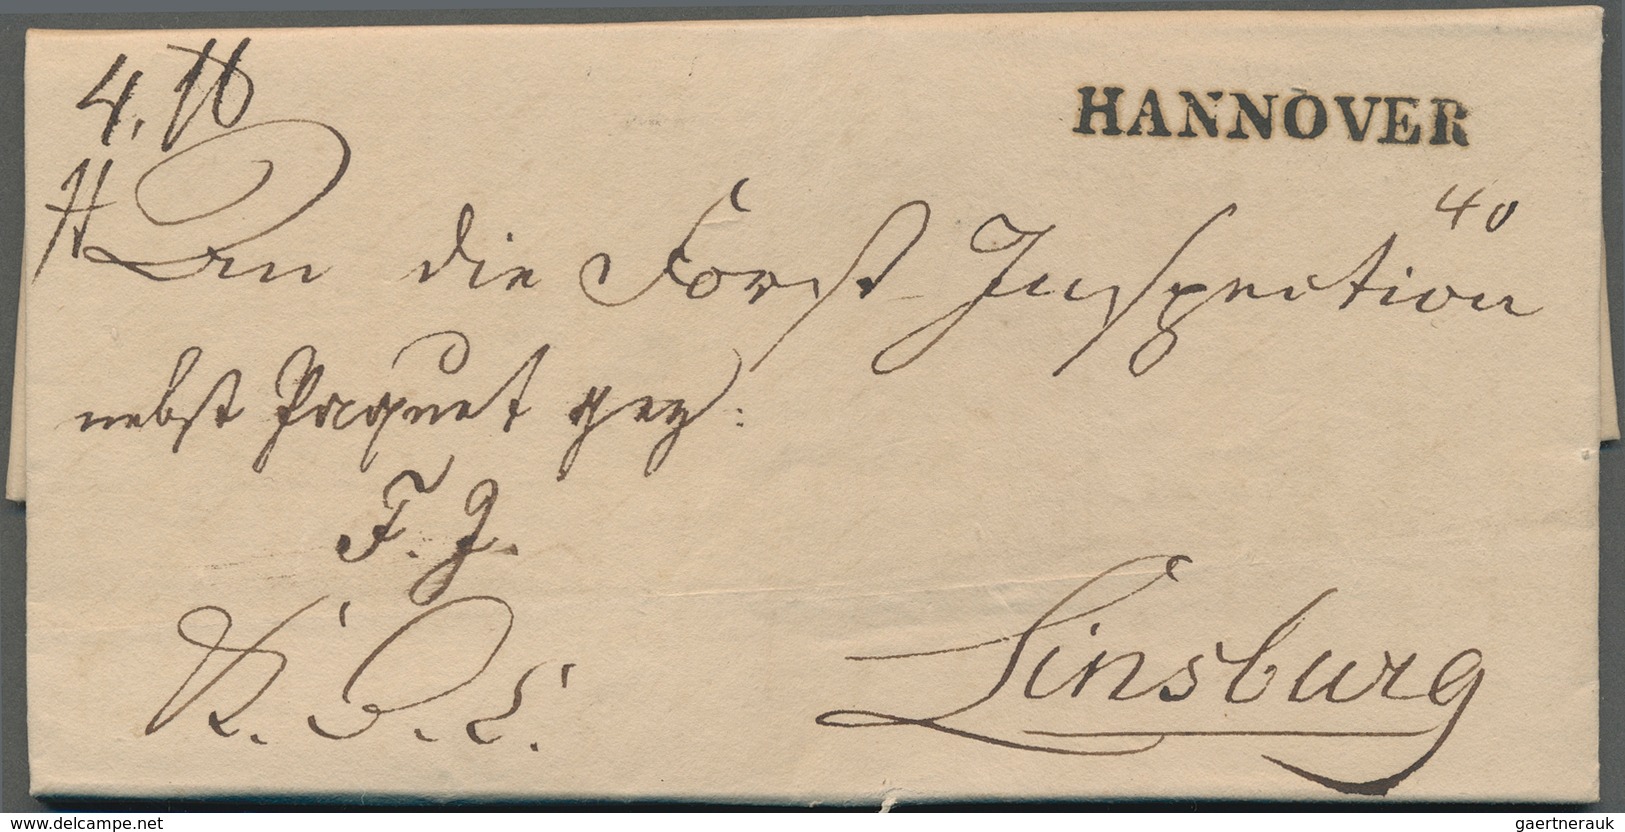 4. ℔
HANNOVER
40
An die Forst Inspection
nebst Paquet gez:
F. J.
K. D. S.
Linsburg
www.delcampe.net
gaertnerauk